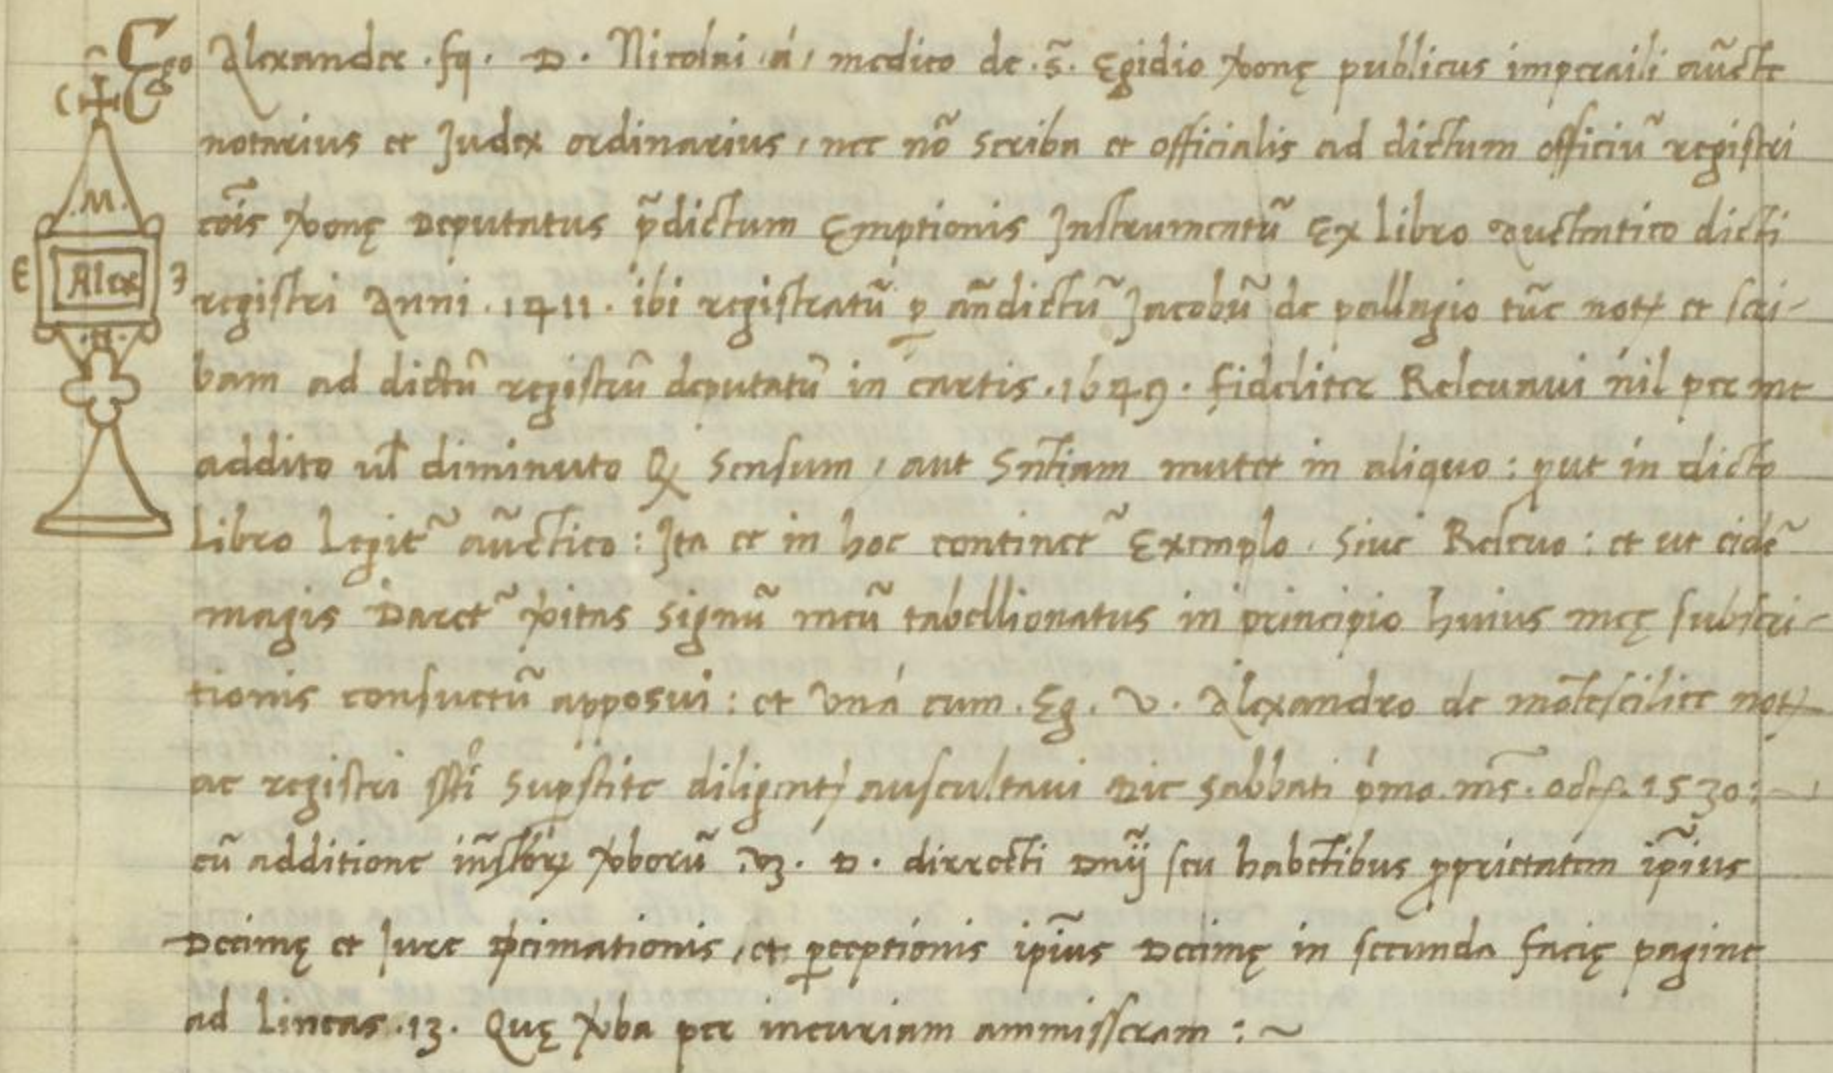 Ego Alexander .fq. D. Nicolai á, medico de .s̃. Egidio Ꝟonę publicus imperaili auc̃te
notarius et Judex ordinarius, nec nõ scriba et officialis ad dictum officiũ registri
cõis Ꝟonę Deputatus p̃dictum Emptionis Instrumentũ Ex libro auctentico dicti
registri Anni .1411. ibi registratũ ꝑ añdictũ Jacobũ de pallazio tũc not et scri-
bam ad dictũ registrũ deputatũ in cartis .1649. fideliter Releuaui nil per me
addito ul̃ diminuto Q sensum, aut Sñtiam mutet in aliquo: ꝓut in dicto
libro legit̃ auc̃tico: Ita et in hoc continet̃ Exemplo. Siue Releuo: et ut eidẽ
magis Daret̃ ꝟitas Signũ meũ tabellionatus in principio huius meę subscri-
tionis consuetũ apposui: et Vná cum .Eg. V. Alexandro de mõtescilice not
ac registri supstite diligent auscultaui Die Sabbati pmo. ms̃. oct. 1530:
cũ additione ꝟborũ .vz. D. dirrecti Dnÿ seu habẽtibus ꝓprietatem ip̃ius
Decimę et Jure decimationis, et ꝑceptionis ip̃ius Decimę in secunda facię pagine
ad Lineas .13. Quę ꝟba per incuriam ammisseram: ~
M.
E Alex J
.H.